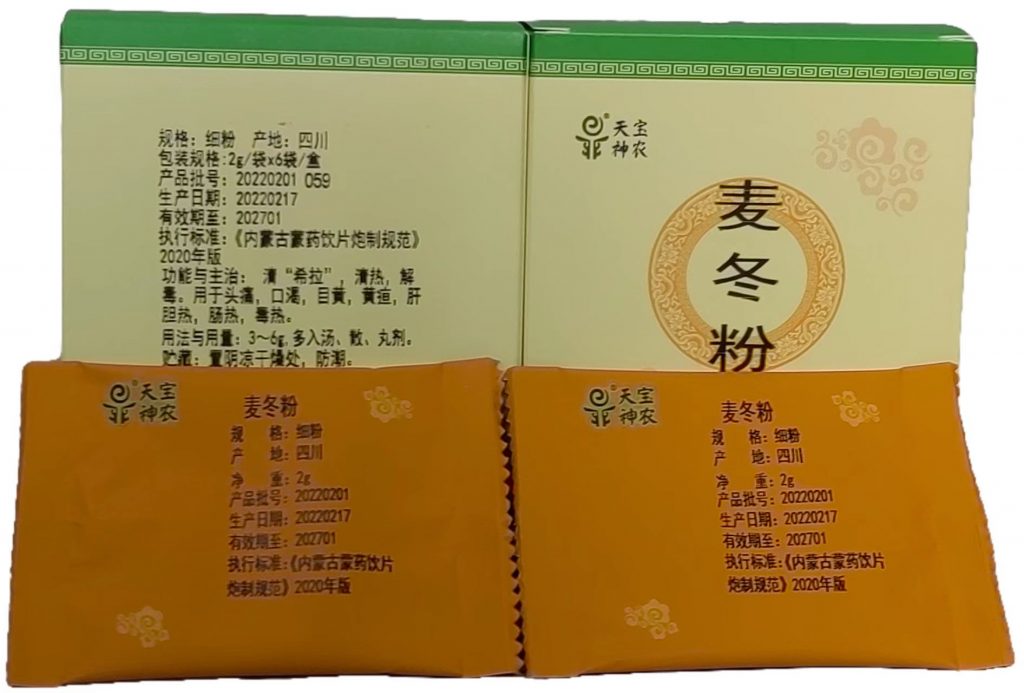 规格：细粉 产地：四川
包装规格:2g/袋x6袋/盒
产品批号：20220201 059
生产日期：20220217
有效期至：202701
执行标准：《内蒙古蒙药饮片炮制规范》
2020年版
功能与主治： 清“希拉”，清热，解
毒。用于头痛，口渴，目黄，黄疸，肝
胆热，肠热，毒热。
用法与用量：3～6g,多入汤、散、丸剂。
贮藏：置阴凉干燥处，防潮。
天宝
神农
麦
冬
粉
天宝
神农
麦冬粉
规 格：细粉
产 地：四川
净 重：2g
产品批号：20220201
生产日期：20220217
有效期至：202701
执行标准：《内蒙古蒙药饮片
炮制规范》2020年版
天宝
神农
麦冬粉
规 格：细粉
产 地：四川
净 重：2g
产品批号：20220201
生产日期：20220217
有效期至：202701
执行标准：《内蒙古蒙药饮片
炮制规范》2020年版